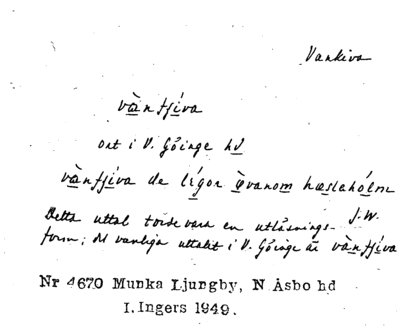 Vankiva
vàntjíva
ort i V. Göinge hd
vàntjíva de lígor òvanom hæslahólm
J.W.
Detta uttal torde vara en utläsnings-
form; det vanliga uttalet i V. Göinge är vàntjíva
Nr 4670 Munka Ljungby, N Åsbo hd
I. Ingers 1949.